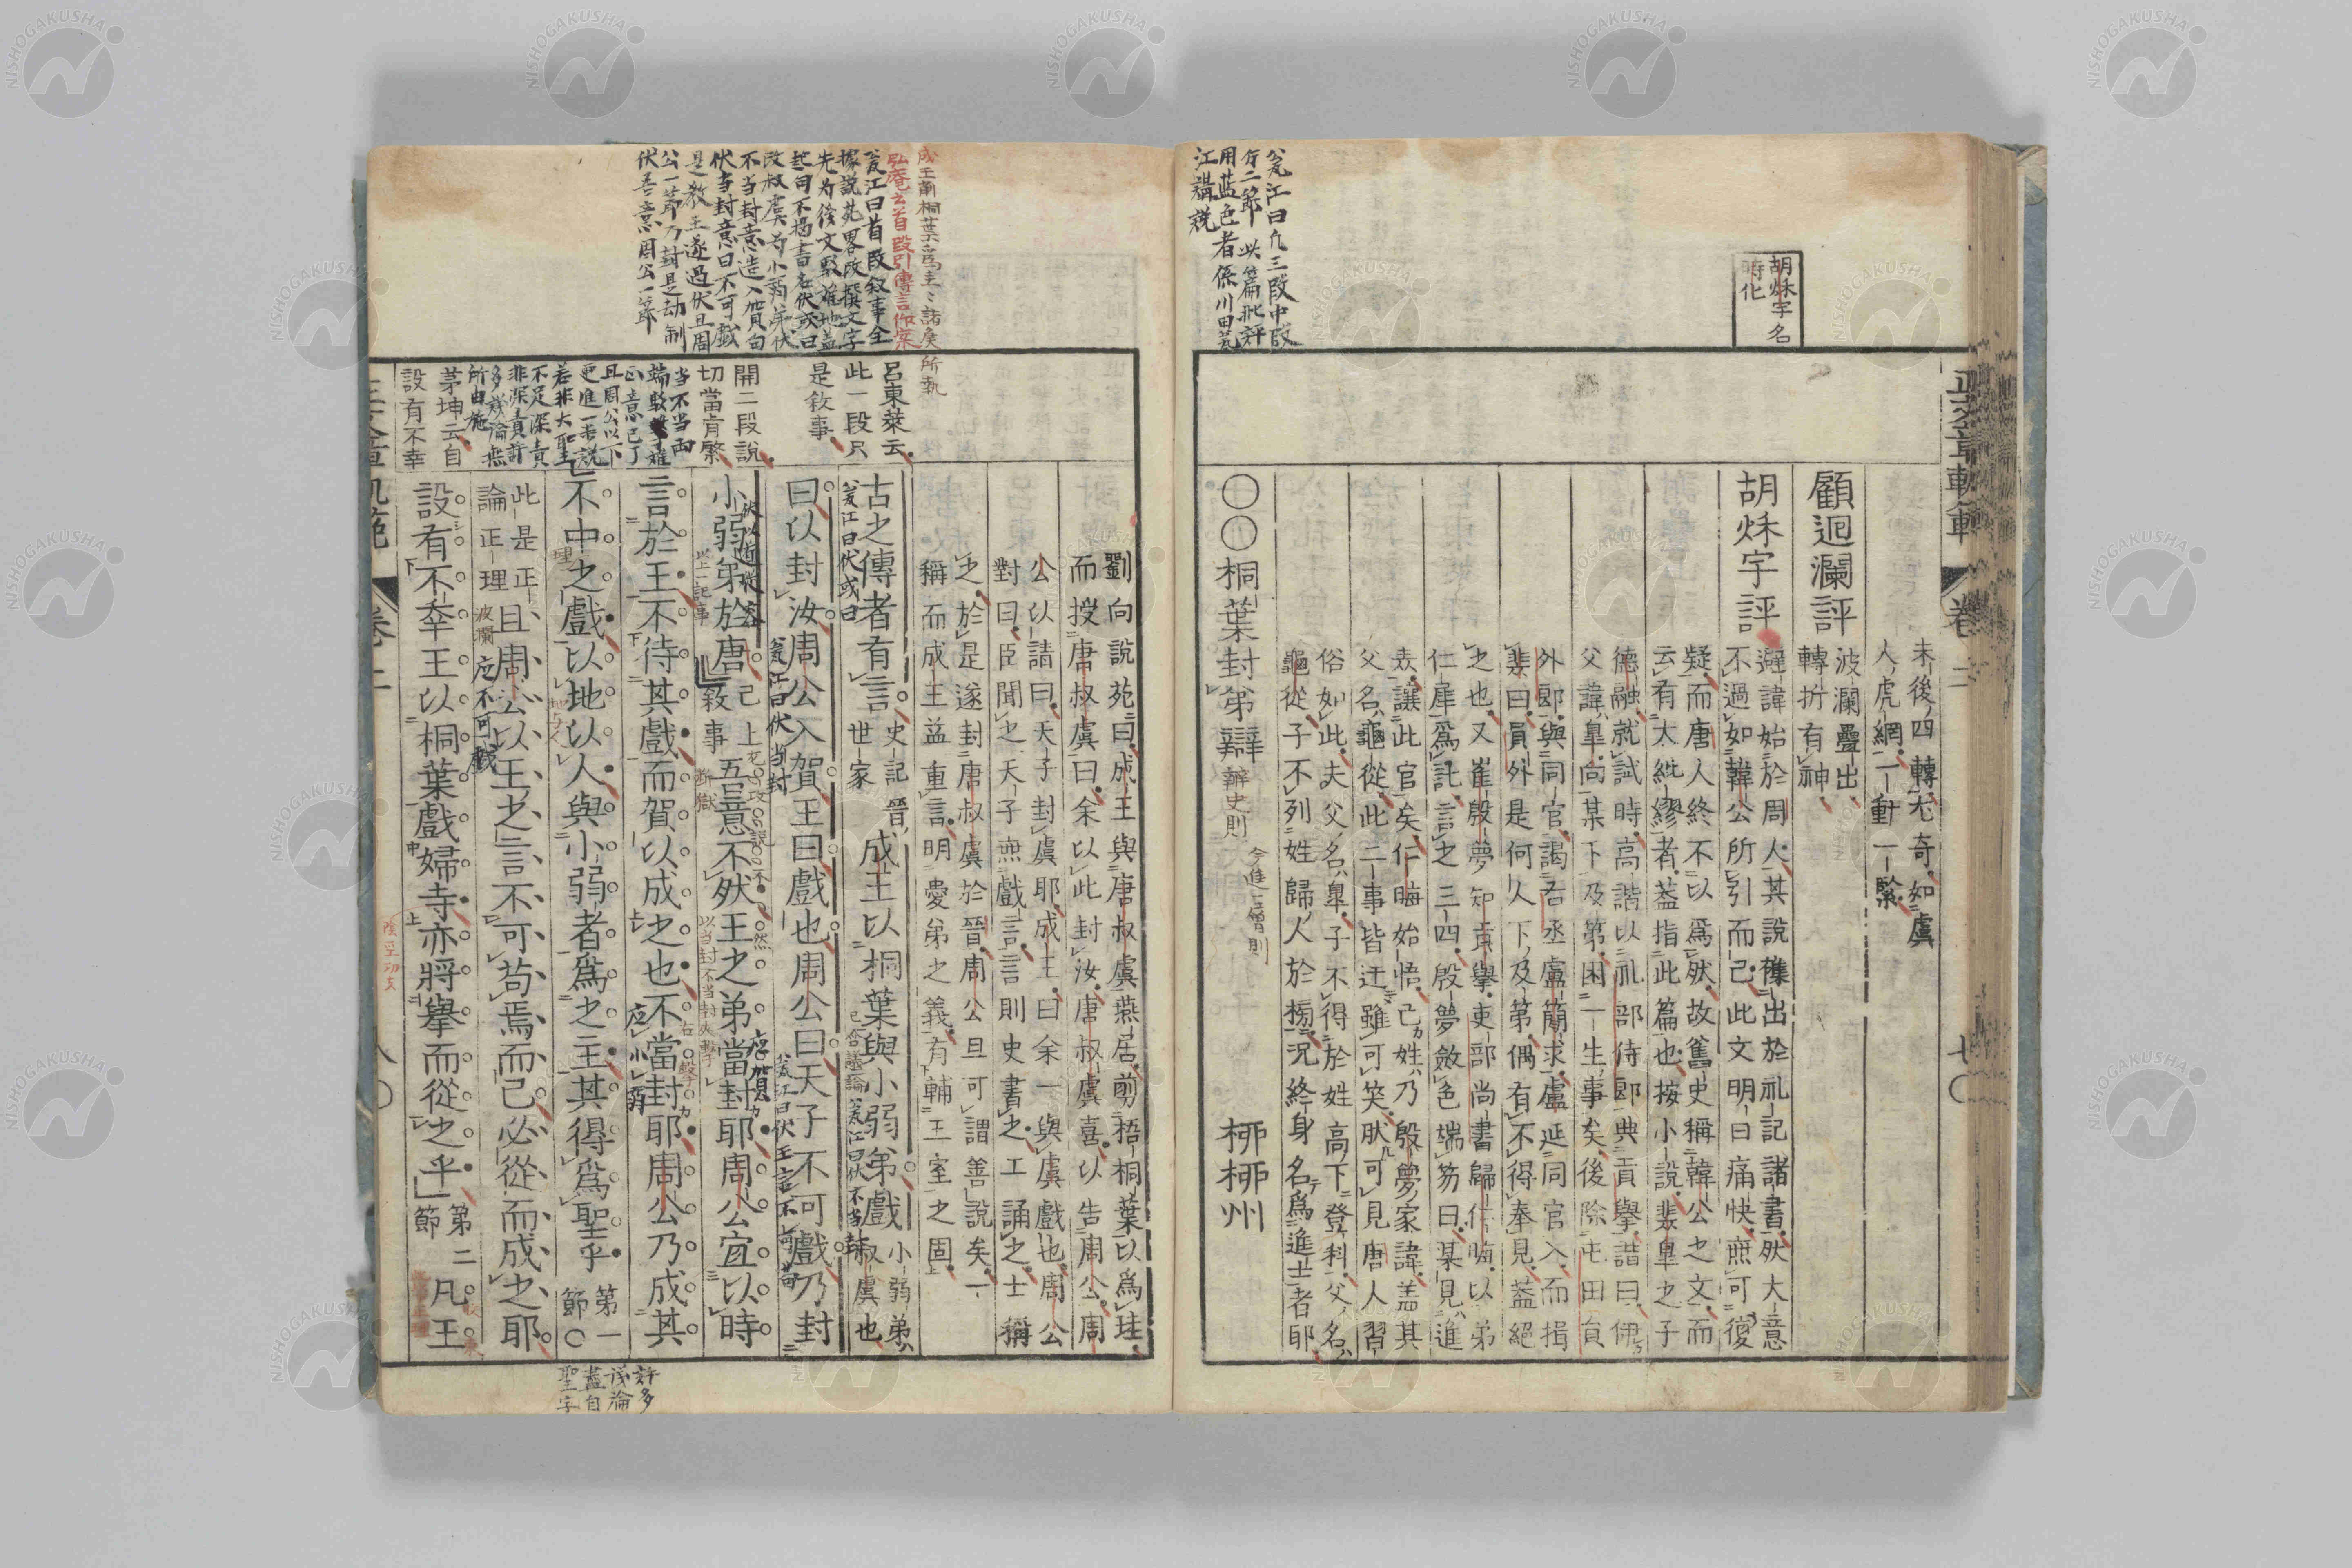 正文章軌範
卷二
七〇
胡秌宇名
時化
翁江曰凢三段中段
分二節此篇批評
用藍色者係川田翁
江講説
末後四轉尤奇如虞
人虎網一動一緊
顧迴瀾評
波瀾疊出
轉折有神
胡秌宇評
避諱始於周人其説襍出於礼記諸書然大意
不過如韓公所引而已此文明白痛快無可復
疑而唐人終不以爲然故舊史稱韓公之文而
云有大紕繆者葢指此篇也按小説裴皐之子
德融就試時高諧以礼部侍郎典貢擧諧曰伊
父諱皐向某下及第困一生事矣後除屯田員
外郎與同官謁右丞盧簡求盧延同官入而揖
裴曰員外是何人下及第偶有不得奉見葢絕
之也又崔殷夢知貢擧吏部尚書歸仁晦以弟
仁厗爲託言之三四殷夢斂色端笏曰某見進
表讓此官矣仁晦始悟己姓乃殷夢家諱盖其
父名龜從此二事皆迂雖可笑肰可見唐人習
俗如此夫父名皐子不得於姓高下登科父名
龜從子不列姓歸人於榜況終身名爲進士者耶
〇〇桐葉封弟辯
辯史則
今進一層則
桺桺州
成王剪桐葉爲圭
弘庵云首段引傳言作案
翁江曰首段敘事全
據説苑畧改撰文字
先爲後文緊雄地盖
起句不揭書名伏或曰
改叔虞爲小弱弟伏
不當封意造入賀句
伏当封意曰不可戲
是教王遂過伏且周
公一節乃封是刧制
伏吾意周公一節
呂東萊云
此一段只
是敘事
開二段説
切當肯綮
当不当両
且周公以下
更進一歩説
若非大聖
不足深責
茅坤云自
設有不幸
劉向説苑曰成王與唐叔虞燕居剪梧桐葉以爲珪
而授唐叔虞曰余以此封汝唐叔虞喜以告周公周
公以請曰天子封虞耶成王曰余一與虞戲也周公
對曰臣聞之天子無戲言言則史書之工誦之士稱
之於是遂封唐叔虞於晉周公旦可謂善説矣一
稱而成王益重言明愛弟之義有輔王室之固
古之傳者有言
史記晉
世家
成王以桐葉與小弱弟戲
小弱弟
叔虞也
翁江曰伏或曰
翁江曰伏不当封
曰以封汝周公入賀王曰戲也周公曰天子不可戲乃封
翁江曰伏当封
翁江曰伏王言不可苟
小弱弟於唐
已上
敘事
吾意不然王之弟當封耶周公宜以時
以上一記事
断獄
應賀
言於王不待其戲而賀以成之也不當封耶周公乃成其
應小弱
不中之戲以地以人與小弱者爲之主其得爲聖乎
第一
節〇
此是正
論正理
且周公以王之言不可苟焉而已必從而成之耶
波瀾
應不可戲
設有不幸王以桐葉戲婦寺亦將擧而從之乎
第二
節
凡王
許多
議論
盖自
聖字
正文章軌範
卷二
八〇